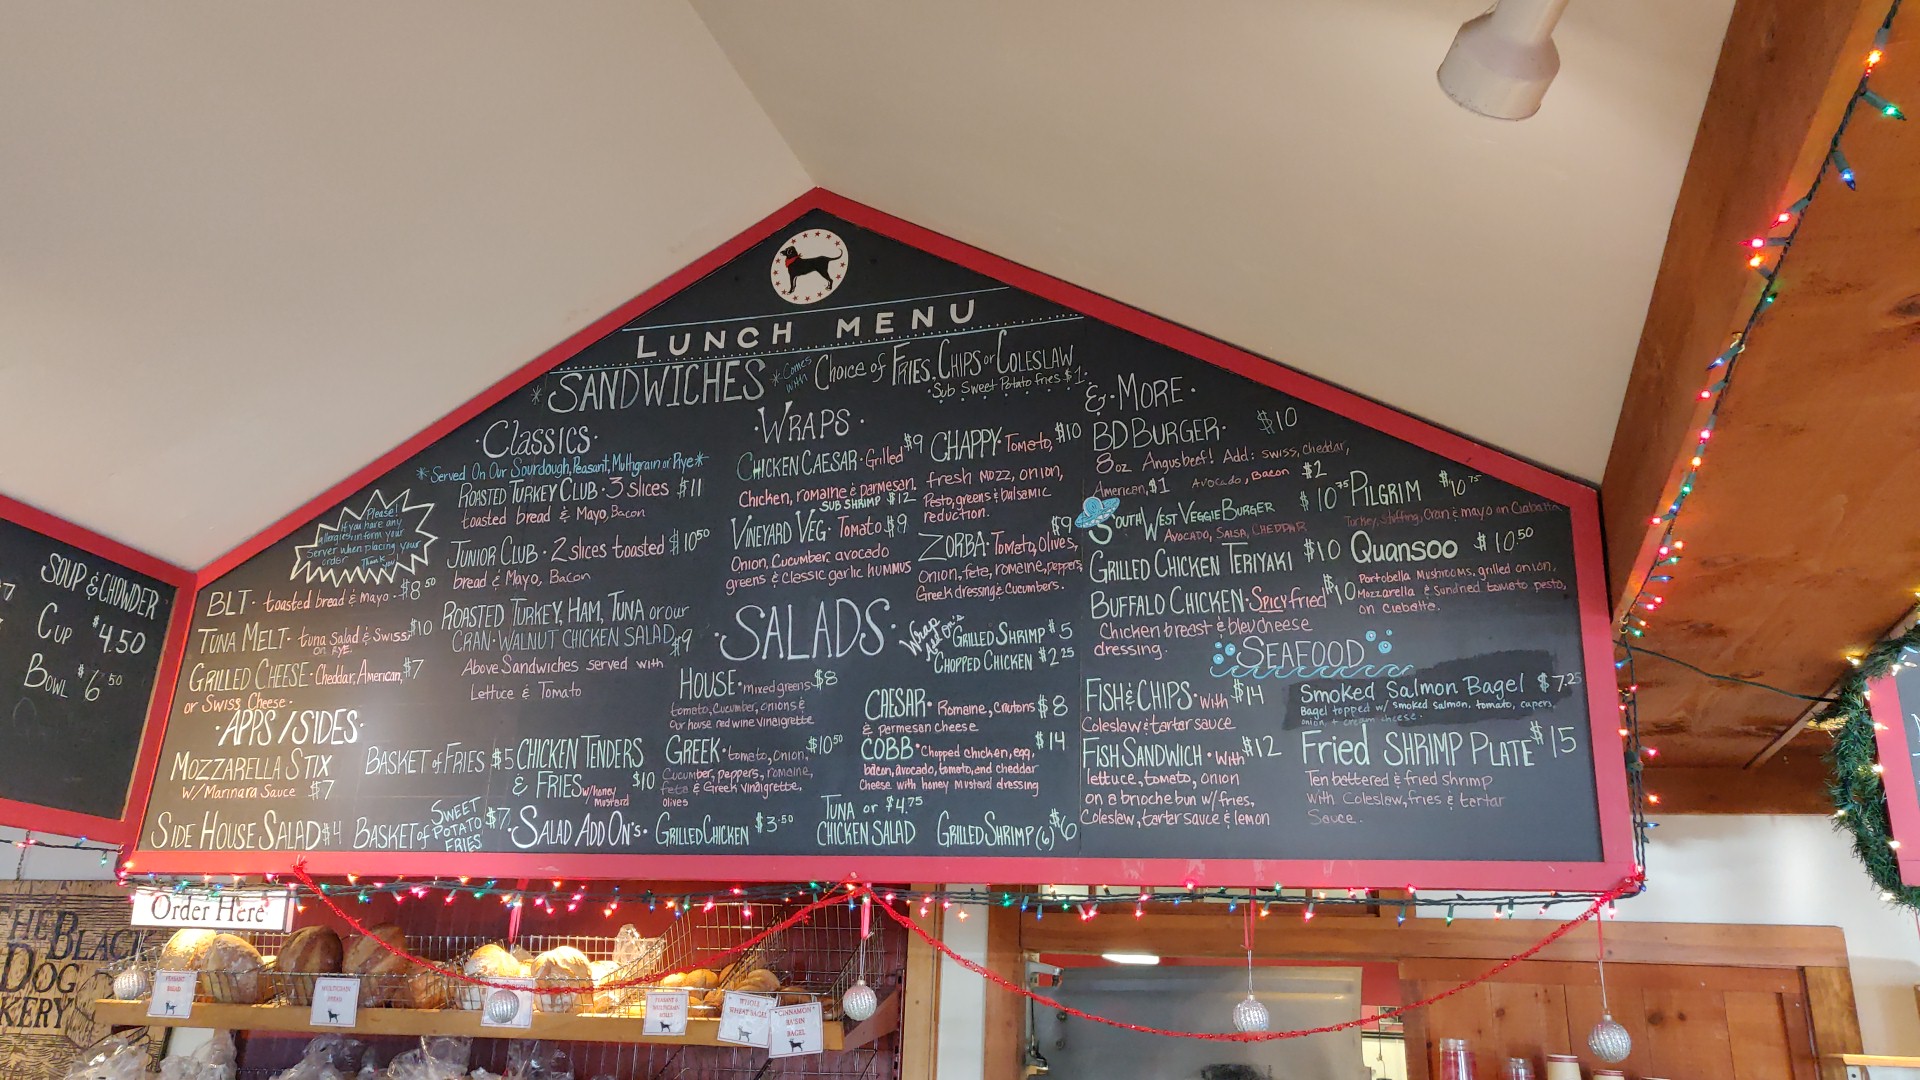 LUNCH MENU
* SANDWICHES * Comes with Choice of FRIES, CHIPS or COLESLAW
Sub Sweet Potato fries $1
· Classics ·
* Served On Our Sourdough, Peasant, Multigrain or Rye *
Please!
If you have any
allergies inform your
Server when placing your
order Thank you!
ROASTED TURKEY CLUB · 3 slices $11
toasted bread & Mayo, Bacon
JUNIOR CLUB · 2 slices toasted $10 50
bread & Mayo, Bacon
ROASTED TURKEY, HAM, TUNA or our
CRAN·WALNUT CHICKEN SALAD $9
Above Sandwiches served with
Lettuce & Tomato
BLT · toasted bread & Mayo · $8 50
TUNA MELT · tuna Salad & Swiss $10
on RYE
GRILLED CHEESE · Cheddar, American, $7
or Swiss Cheese ·
· APPS / SIDES ·
MOZZARELLA STIX
W/ Marinara Sauce $7
SIDE HOUSE SALAD $4
BASKET of FRIES $5
BASKET of SWEET POTATO FRIES $7
CHICKEN TENDERS
& FRIES w/ honey mustard $10
· WRAPS ·
CHICKEN CAESAR · Grilled $9
Chicken, romaine & parmesan.
SUB SHRIMP $12
VINEYARD VEG · Tomato $9
Onion, Cucumber, avocado
greens & classic garlic hummus
CHAPPY · Tomato, $10
fresh mozz, onion,
Pesto, greens & balsamic
reduction.
ZORBA · Tomato, Olives, $9
Onion, feta, romaine, peppers,
Greek dressing & Cucumbers.
Wrap Add On's
GRILLED SHRIMP $5
CHOPPED CHICKEN $2 25
· SALADS ·
HOUSE · mixed greens $8
tomato, Cucumber, onions &
Our house red wine vinaigrette
GREEK · tomato, onion, $10 50
Cucumber, peppers, romaine,
feta & Greek vinaigrette,
olives
CAESAR · Romaine, croutons $8
& parmesan cheese
COBB · Chopped chicken, egg, $14
bacon, avocado, tomato, and cheddar
Cheese with honey mustard dressing
· SALAD ADD ON'S · GRILLED CHICKEN $3·50
TUNA or $4.75
CHICKEN SALAD
GRILLED SHRIMP (6) $6
& · MORE ·
BD BURGER · $10
8oz Angus beef! Add: swiss, cheddar,
American, $1 Avocado, Bacon $2
SOUTHWEST VEGGIE BURGER $10 75
AVOCADO, SALSA, CHEDDAR
GRILLED CHICKEN TERIYAKI $10
BUFFALO CHICKEN · Spicy fried $10
Chicken breast & bleu cheese
dressing.
PILGRIM $10 75
Turkey, Stuffing, Cran & mayo on Ciabatta
Quansoo $10.50
Portobella Mushrooms, grilled onion,
Mozzarella & Sundried tomato pesto,
on Ciabatta.
SEAFOOD
FISH & CHIPS · With $14
Coleslaw & tartar sauce
FISH SANDWICH · With $12
lettuce, tomato, onion
on a brioche bun w/ fries,
Coleslaw, tartar sauce & lemon
Smoked Salmon Bagel $7.25
Bagel topped w/ smoked salmon, tomato, capers,
onion, + cream cheese.
Fried SHRIMP PLATE $15
Ten battered & fried shrimp
with Coleslaw, fries & tartar
Sauce.
SOUP & CHOWDER
CUP $4.50
BOWL $6 50
Order Here
THE BLACK
DOG
PEASANT BREAD
MULTIGRAIN BREAD
WHOLE WHEAT BAGEL
CINNAMON RAISIN BAGEL